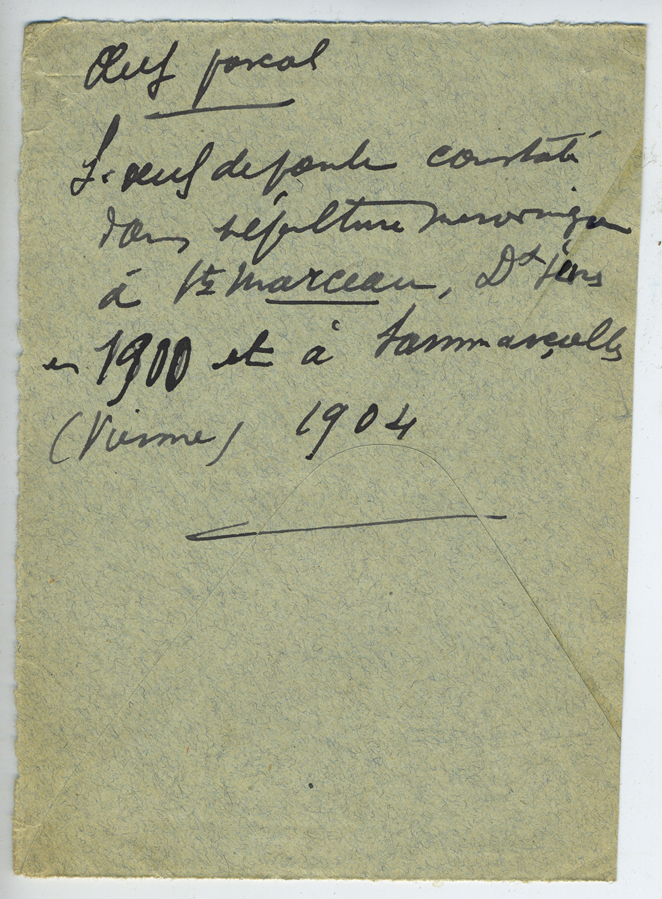 Œuf pascal
L'œuf de poule constaté
dans sépulture mérovingien
à St Marceau, Dt
en 1900 et à Sammarçolles
(Vienne) 1904